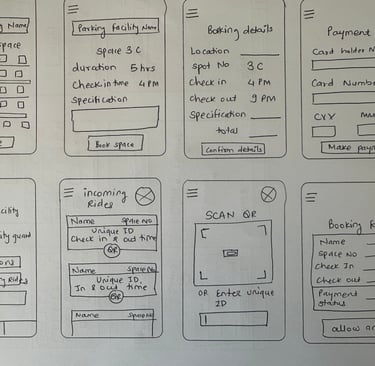 Name)
space
Parking Facility Name
Space 3C
duration 5 hrs
Check in time 4 PM
Specification
Book space
Booking details
Location
Spot No 3C
check in 4 PM
check out 9 PM
Specification
total
Confirm details
Payment
Card holder N
Card Number
CVV
Make payme
cility
ity guard
ons
Rides
incoming
Rides
Name Space No
Unique ID
Check in & out time
QR
Name Space No
Unique ID,
In & out time
QR
Name Space No
SCAN QR
OR Enter unique
ID
Booking
Name
Space No
Check In
Check out
Payment
status
allow an